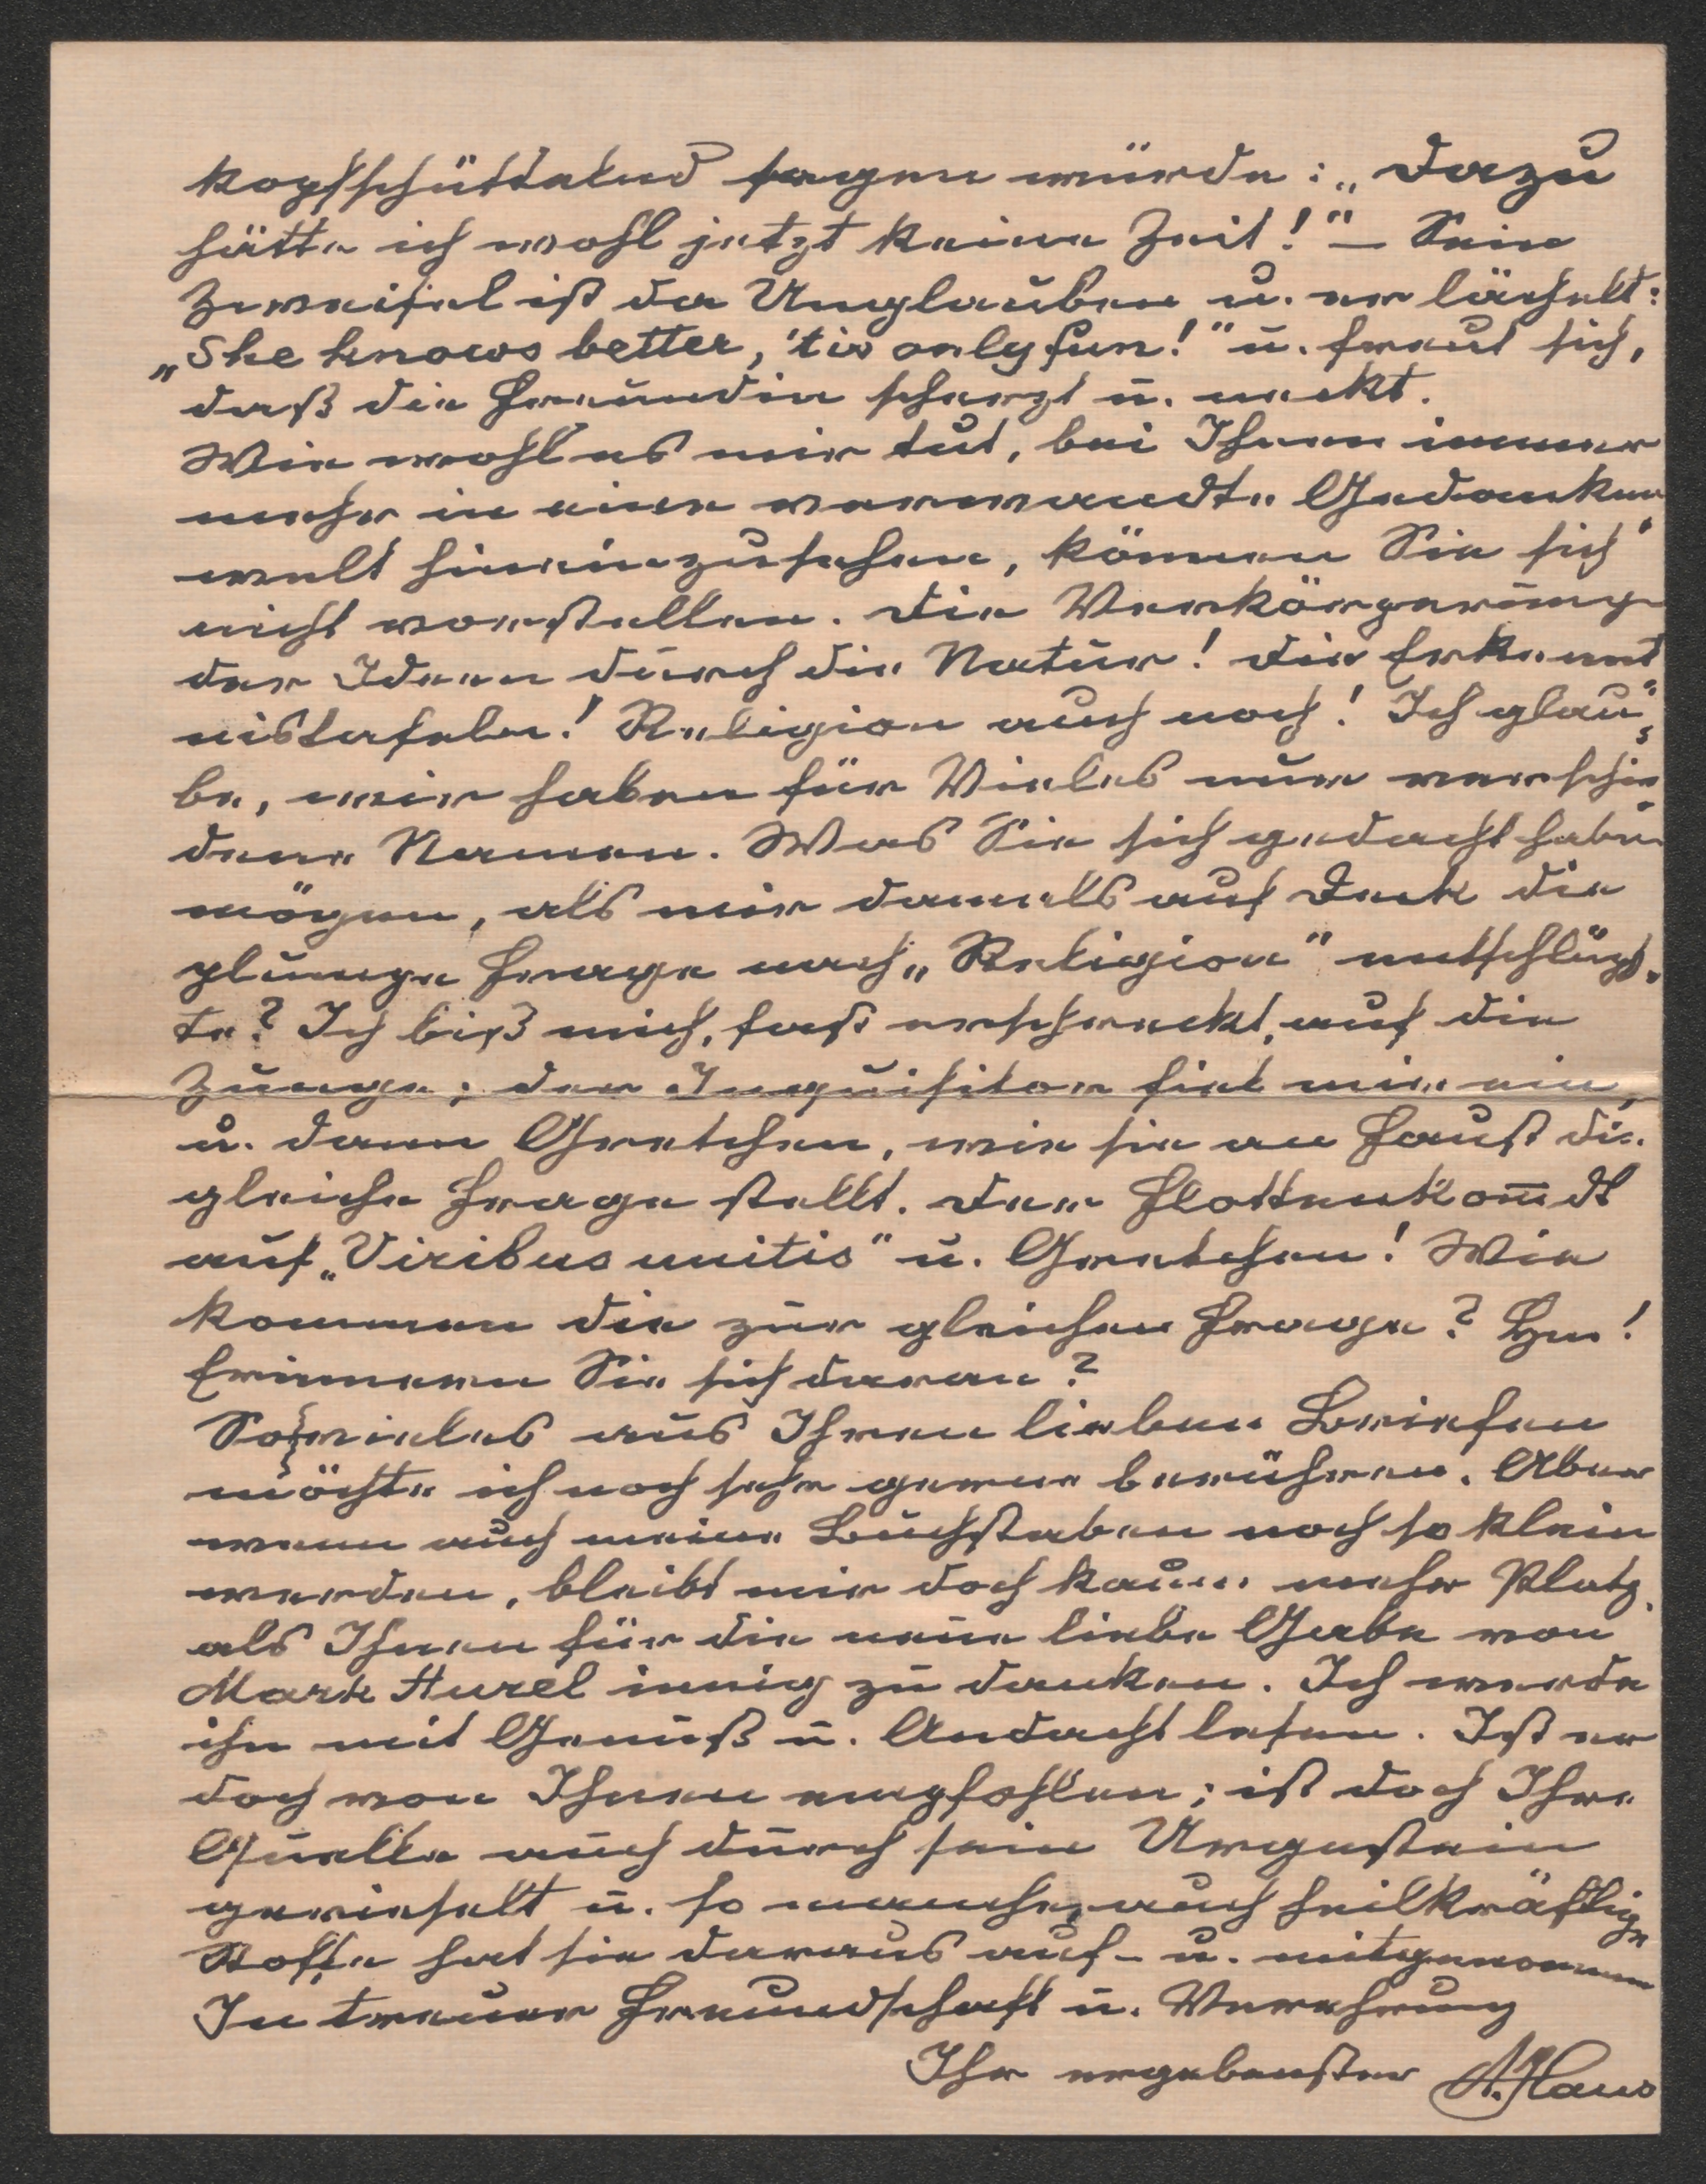 kopfschüttelnd sagen würde: „Dazu
hätte ich wohl jetzt keine Zeit!" – Sein
Zweifel ist da Unglauben u. er lächelt:
„She knows better, 'tis only fun!" u. freut sich,
daß die Freundin scherzt u. neckt.
Wie wohl es mir tut, bei Ihnen immer
mehr in eine verwandte Gedanken
welt hineinzusehen, können Sie sich
nicht vorstellen. Die Verkörperung
der Ideen durch die Natur! Die Erkennt"
nistafeln! Religion auch noch! Ich glau"
be, wir haben für Vieles nur verschie"
dene Namen. Was Sie sich gedacht haben
mögen, als mir damals auf Deck die
plumpe Frage nach „Religion" entschlüpf"
te? Ich biß mich, fast erschreckt, auf die
Zunge; der Inquisitor fiel mir ein,
u. dann Gretchen, wie sie an Faust die
gleiche Frage stellt. Der Flottenkom̅dt
auf „Viribus unitis" u. Gretchen! Wie
kommen die zur gleichen Frage? Hm!
Erinnern Sie sich daran?
So vieles aus Ihren lieben Briefen
möchte ich noch sehr gerne berühren. Aber
wenn auch meine Buchstaben noch so klein
werden, bleibt mir doch kaum mehr Platz
als Ihnen für die neue liebe Gabe von
Mark Aurel innig zu danken. Ich werde
ihn mit Genuß u. Andacht lesen. Ist er
doch von Ihnen empfohlen; ist doch Ihre
Quelle auch durch sein Urgestein
gerieselt u. so manche, auch heilkräftige
Stoffe hat sie daraus auf- u. mitgenommen
In treuer Freundschaft u. Verehrung
Ihr ergebenster A. Haus